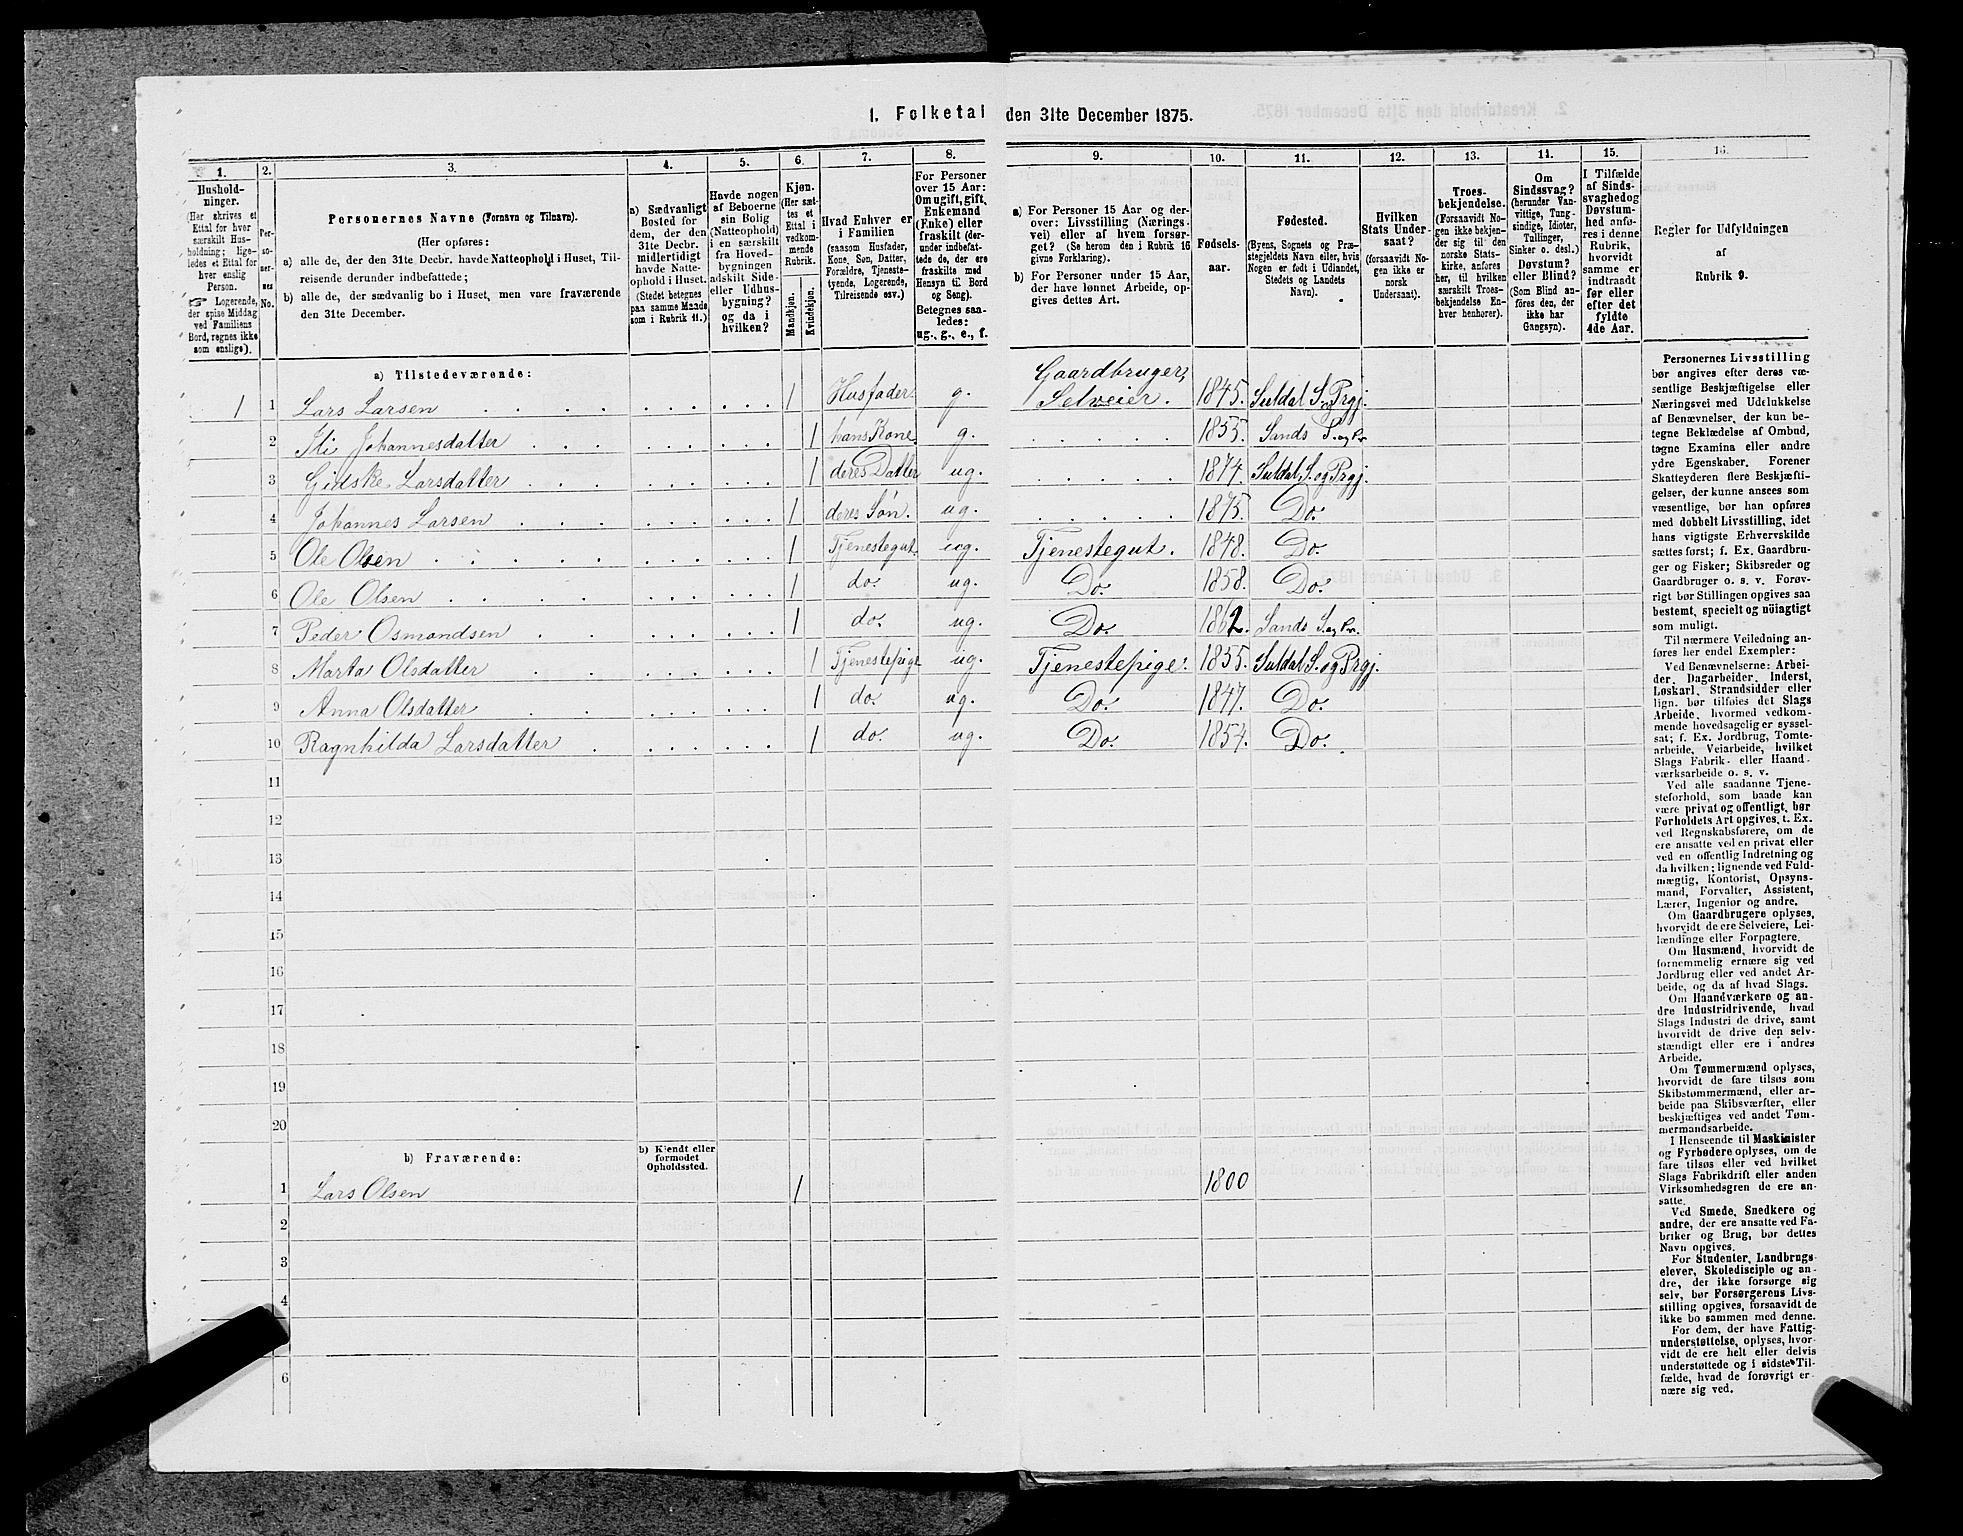 1. Folketal den 31te December 1875.
1.
Hushold-
ninger.
(Her skrives et
Ettal for hver
særskilt Hus-
holdning; lige-
ledes et Ettal for
hver enslig
Person.
☞ Logerende,
der spise Middag
ved Familiens
Bord, regnes ikke
som enslige).
2.
Per-
so-
ner-
nes
No.
3.
Personernes Navne (Fornavn og Tilnavn).
(Her opføres:
a) alle de, der den 31te Decbr. havde Natteophold i Huset, Til-
reisende derunder indbefattede;
b) alle de, der sædvanlig bo i Huset, men vare fraværende
den 31te December.
4.
a) Sædvanligt
Bosted for
dem, der den
31te Decbr.
midlertidigt
havde Natte-
ophold i Huset.
(Stedet betegnes
paa samme Maade
som i Rubrik 11.)
5.
Havde nogen
af Beboerne
sin Bolig
(Natteophold)
i en særskilt
fra Hoved-
bygningen
adskilt Side-
eller Udhus-
bygning?
og da i
hvilken?
6.
Kjøn.
(Her sæt-
tes et
Ettal i
vedkom-
mende
Rubrik.
Mandkjøn.
Kvindekjøn.
7.
Hvad Enhver er
i Familien
(saasom Husfader,
Kone, Søn, Datter,
Forældre, Tjeneste-
tyende, Logerende,
Tilreisende osv.)
8.
For Personer
over 15 Aar:
Om ugift, gift,
Enkemand
(Enke) eller
fraskilt (der-
under indbefat-
tede de, der ere
fraskilte med
Hensyn til Bord
og Seng).
Betegnes saa-
ledes:
ug., g., e., f.
9.
a) For Personer 15 Aar og der-
over: Livsstilling (Nærings-
vei) eller af hvem forsør-
get? (Se herom den i Rubrik 16
givne Forklaring).
b) For Personer under 15 Aar,
der have lønnet Arbeide, op-
gives dettes Art.
10.
Fødsels-
aar.
11.
Fødested.
(Byens, Sognets og Præ-
stegjeldets Navn eller, hvis
Nogen er født i Udlandet,
Stedets og Landets
Navn).
12.
Hvilken
Stats Under-
saat?
(forsaavidt No-
gen ikke er
norsk
Undersaat).
13.
Troes-
bekjendelse.
(Forsaavidt No-
gen ikke bekjen-
der sig til den
norske Stats-
kirke, anføres
her, til hvilken
særskilt Troes-
bekjendelse En-
hver henhører).
14.
Om
Sindssvag?
(herunder Van-
vittige, Tung-
sindige, Idioter,
Tullinger,
Sinker o. desl.)
Døvstum?
eller Blind?
(Som Blind an-
føres den, der
ikke har
Gangsyn).
15.
I Tilfælde
af Sinds-
svaghed og
Døvstum-
hed anfø-
res i denne
Rubrik,
hvorvidt
samme er
indtraadt
før eller
efter det
fyldte
4de Aar.
16.
Regler for Udfyldningen
af
Rubrik 9.
a) Tilstedeværende:
1 1 Lars Larsen 1 Husfader g. Gaardbruger, Selveier. 1845. Suldal S. og Prgj.
2 Iti Johannesdatter 1 hans Kone g. 1855. Sands S. og Pr.
3 Gidske Larsdatter 1 deres Datter ug. 1874. Suldal S. og Prgj.
4 Johannes Larsen 1 deres Søn. ug. 1875. Do.
5 Ole Olsen 1 Tjenestegut. ug. Tjenestegut. 1848. Do.
6 Ole Olsen 1 do. ug. Do. 1858. Do.
7 Peder Osmondsen 1 do. ug. Do. 1862. Sands S. og Pr.
8 Marta Olsdatter 1 Tjenestepige ug. Tjenestepige. 1855. Suldal S. og Prgj.
9 Anna Olsdatter 1 do. ug. Do. 1847. Do.
10 Ragnhilda Larsdatter 1 do. ug. Do. 1854. Do.
11
12
13
14
15
16
17
18
19
20
b) Fraværende:
b) Kjendt eller
formodet
Opholdssted.
1 Lars Olsen 1 1800
2
3
4
6
Personernes Livsstilling
bør angives efter deres væ-
sentlige Beskjæftigelse eller
Næringsvei med Udelukkelse
af Benævnelser, der kun be-
tegne Beklædelse af Ombud,
tagne Examina eller andre
ydre Egenskaber. Forener
Skatteyderen flere Beskjæfti-
gelser, der kunne ansees som
væsentlige, bør han opføres
med dobbelt Livsstilling, idet
hans vigtigste Erhvervskilde
sættes først; f. Ex. Gaardbru-
ger og Fisker; Skibsreder og
Gaardbruger o. s. v. Forøv-
rigt bør Stillingen opgives saa
bestemt, specielt og nöiagtigt
som muligt.
Til nærmere Veiledning an-
føres her endel Exempler:
Ved Benævnelserne: Arbei-
der, Dagarbeider, Inderst,
Løskarl, Strandsidder eller
lign. bør tilføies det Slags
Arbeide, hvormed vedkom-
mende hovedsagelig er syssel-
sat; f. Ex. Jordbrug, Tomte-
arbeide, Veiarbeide, hvilket
Slags Fabrik- eller Haand-
værksarbeide o. s. v.
Ved alle saadanne Tjene-
steforhold, som baade kan
være privat og offentligt, bør
Forholdets Art opgives, t. Ex.
ved Regnskabsførere, om de
ere ansatte ved en privat eller
ved en offentlig Indretning og
da hvilken; lignende ved Fuld-
mægtig, Kontorist, Opsyns-
mand, Forvalter, Assistent,
Lærer, Ingeniør og andre.
Om Gaardbrugere oplyses,
hvorvidt de ere Selveiere, Lei-
lændinge eller Forpagtere.
Om Husmænd, hvorvidt de
fornemmelig ernære sig ved
Jordbrug eller ved andet Ar-
beide, og da af hvad Slags.
Om Haandværkere og an-
dre Industridrivende, hvad
Slags Industri de drive, samt
hvorvidt de drive den selv-
stændigt eller ere i andres
Arbeide.
Om Tømmermænd oplyses,
hvorvidt de fare tilsøs som
Skibstømmermænd, eller ar-
beide paa Skibsværfter, eller
beskjæftiges ved andet Tøm-
mermandsarbeide.
I Henseende til Maskinister
og Fyrbødere oplyses, om de
fare tilsøs eller ved hvilket
Slags Fabrikdrift eller anden
Virksomhedsgren de ere an-
satte.
Ved Smede, Snedkere og
andre, der ere ansatte ved Fa-
briker og Brug, bør dettes
Navn opgives.
For Studenter, Landbrugs-
elever, Skoledisciple og an-
dre, der ikke forsørge sig
selv, bør Forsørgerens Livs-
stilling opgives, forsaavidt de
ikke bo sammen med denne.
For dem, der have Fattig-
understøttelse, oplyses, hvor-
vidt de ere helt eller delvis
understøttede og i sidste Til-
fælde, hvad de forøvrigt er-
nære sig ved.